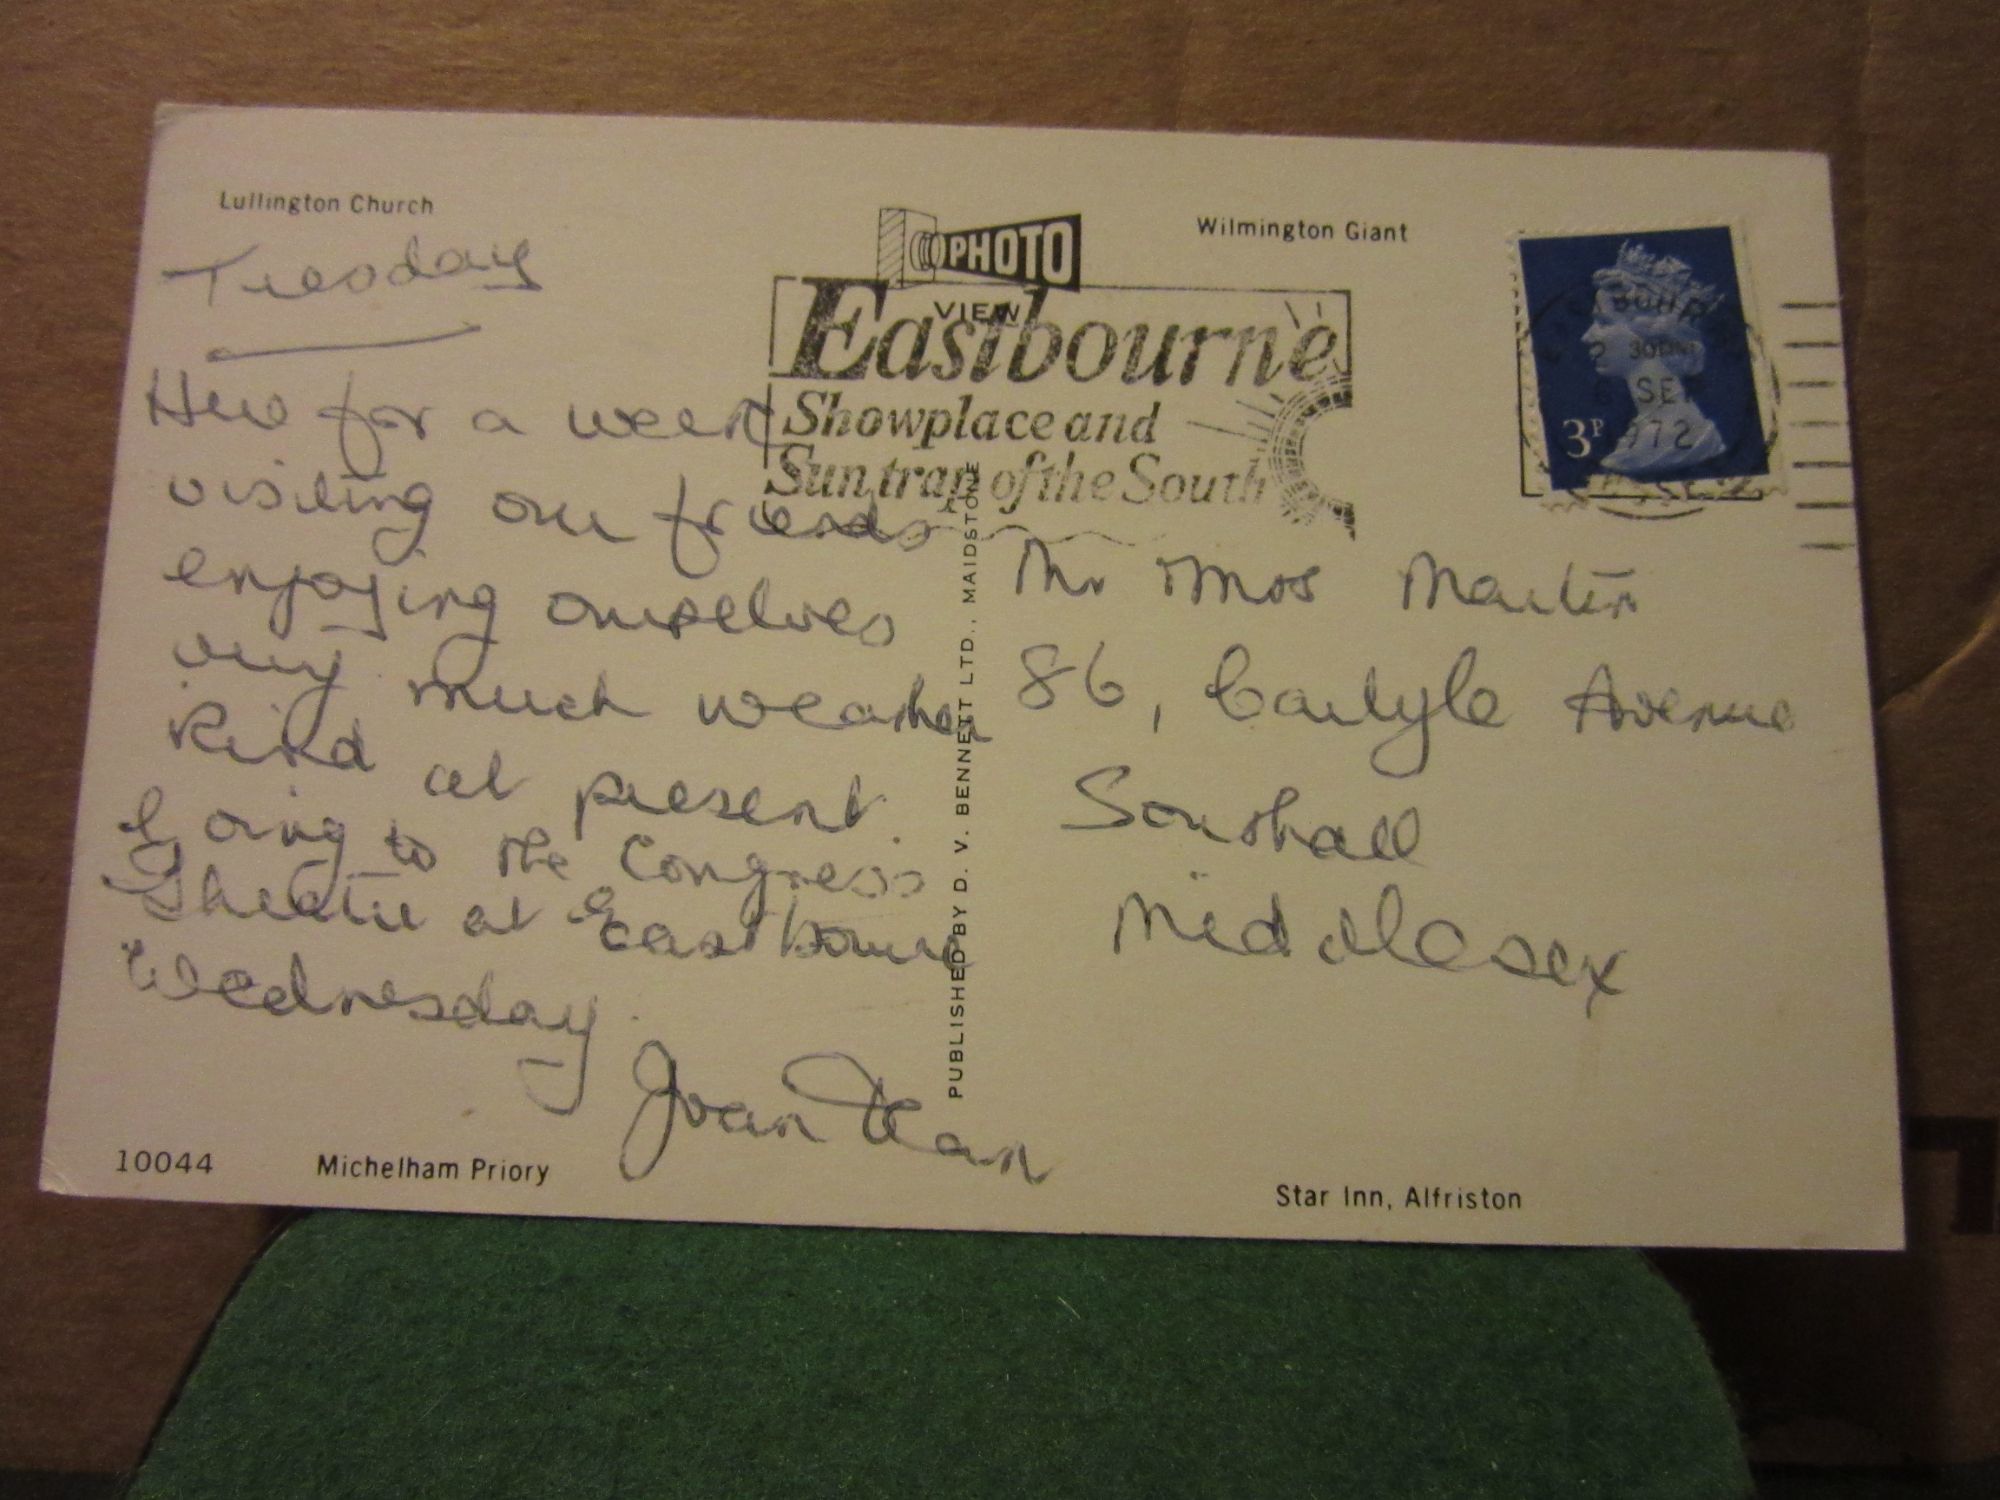 Lullington Church
Wilmington Giant
PHOTO
VIEW
Eastbourne
Showplace and
Suntrap of the South
3P
SEP
1972
Tuesday
Here for a week
visiting our friends
enjoying ourselves
very much weather
kind at present.
Going to the Congress
Theatre at Eastbourne
Wednesday.
Joan
Mr & Mrs Martin
86, Carlyle Avenue
Southall
Middlesex
PUBLISHED BY D. V. BENNETT LTD., MAIDSTONE
10044
Michelham Priory
Star Inn, Alfriston